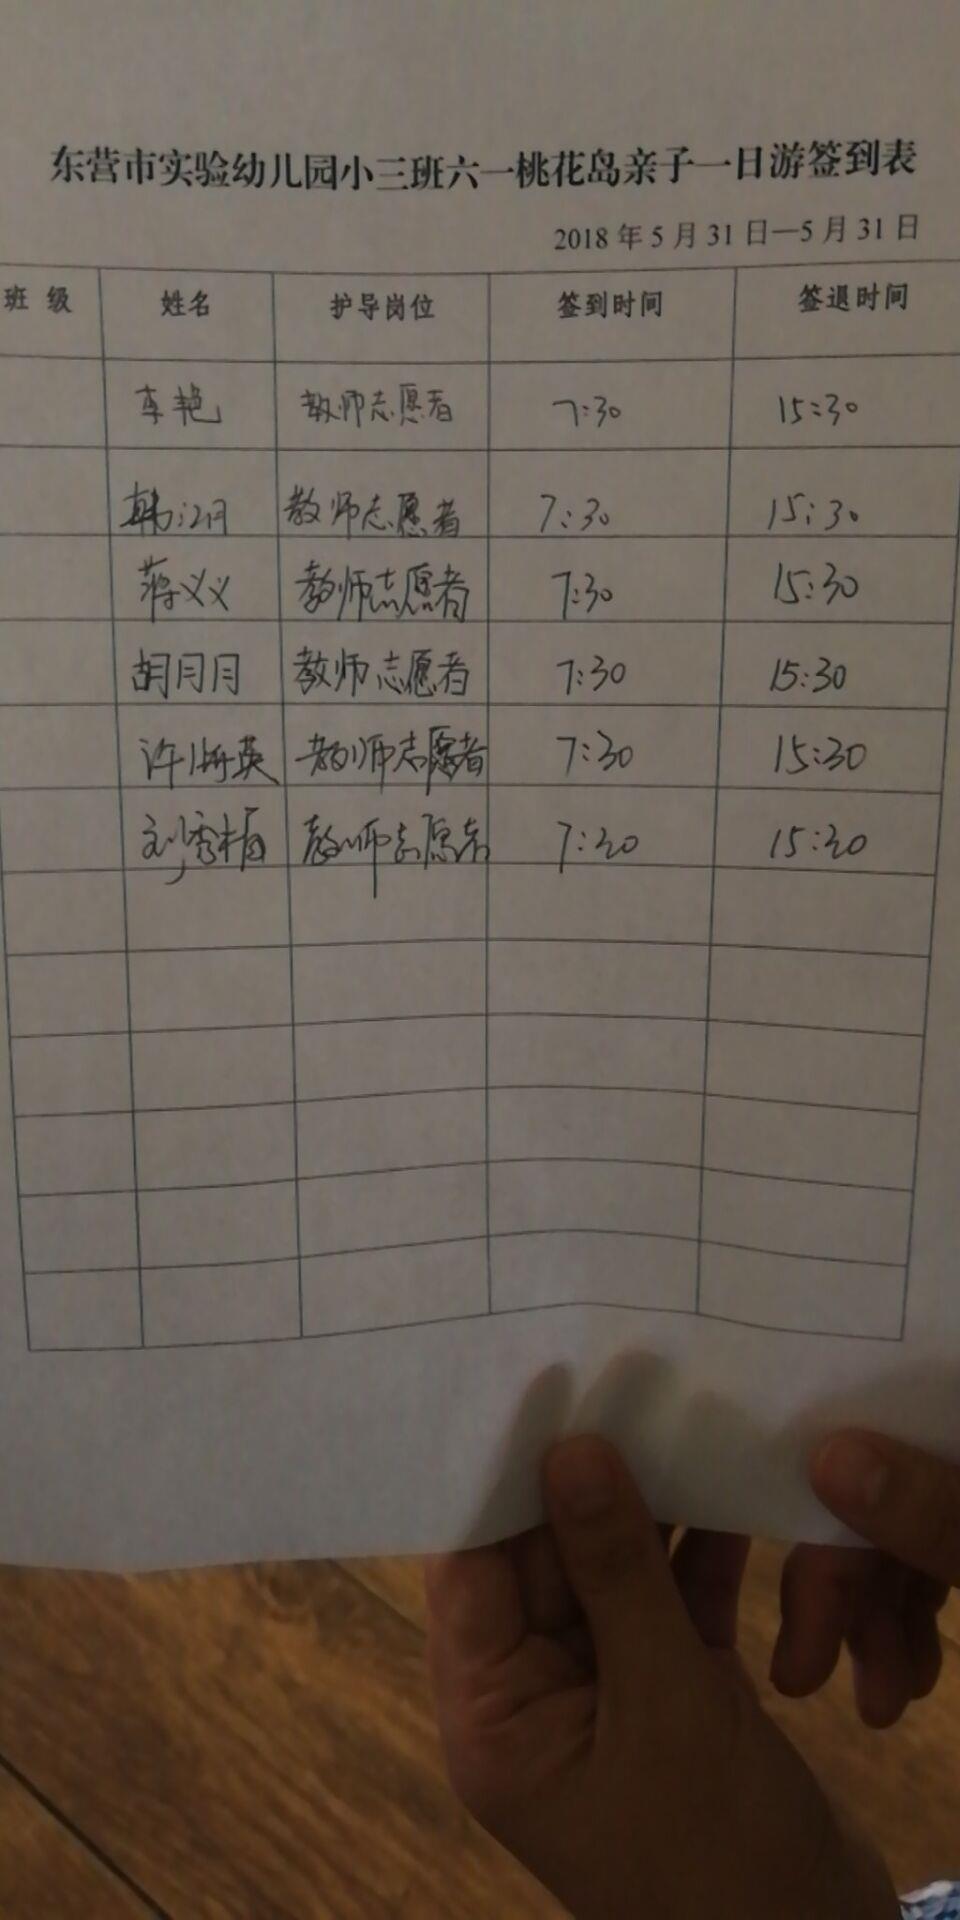 东营市实验幼儿园小三班六一桃花岛亲子一日游签到表
2018年5月31日—5月31日
班 级 姓名 护导岗位 签到时间 签退时间
李艳 教师志愿者 7:30 15:30
韩 教师志愿者 7:30 15:30
蒋义义 教师志愿者 7:30 15:30
胡月月 教师志愿者 7:30 15:30
许海英 教师志愿者 7:30 15:30
刘秀梅 教师志愿者 7:30 15:30